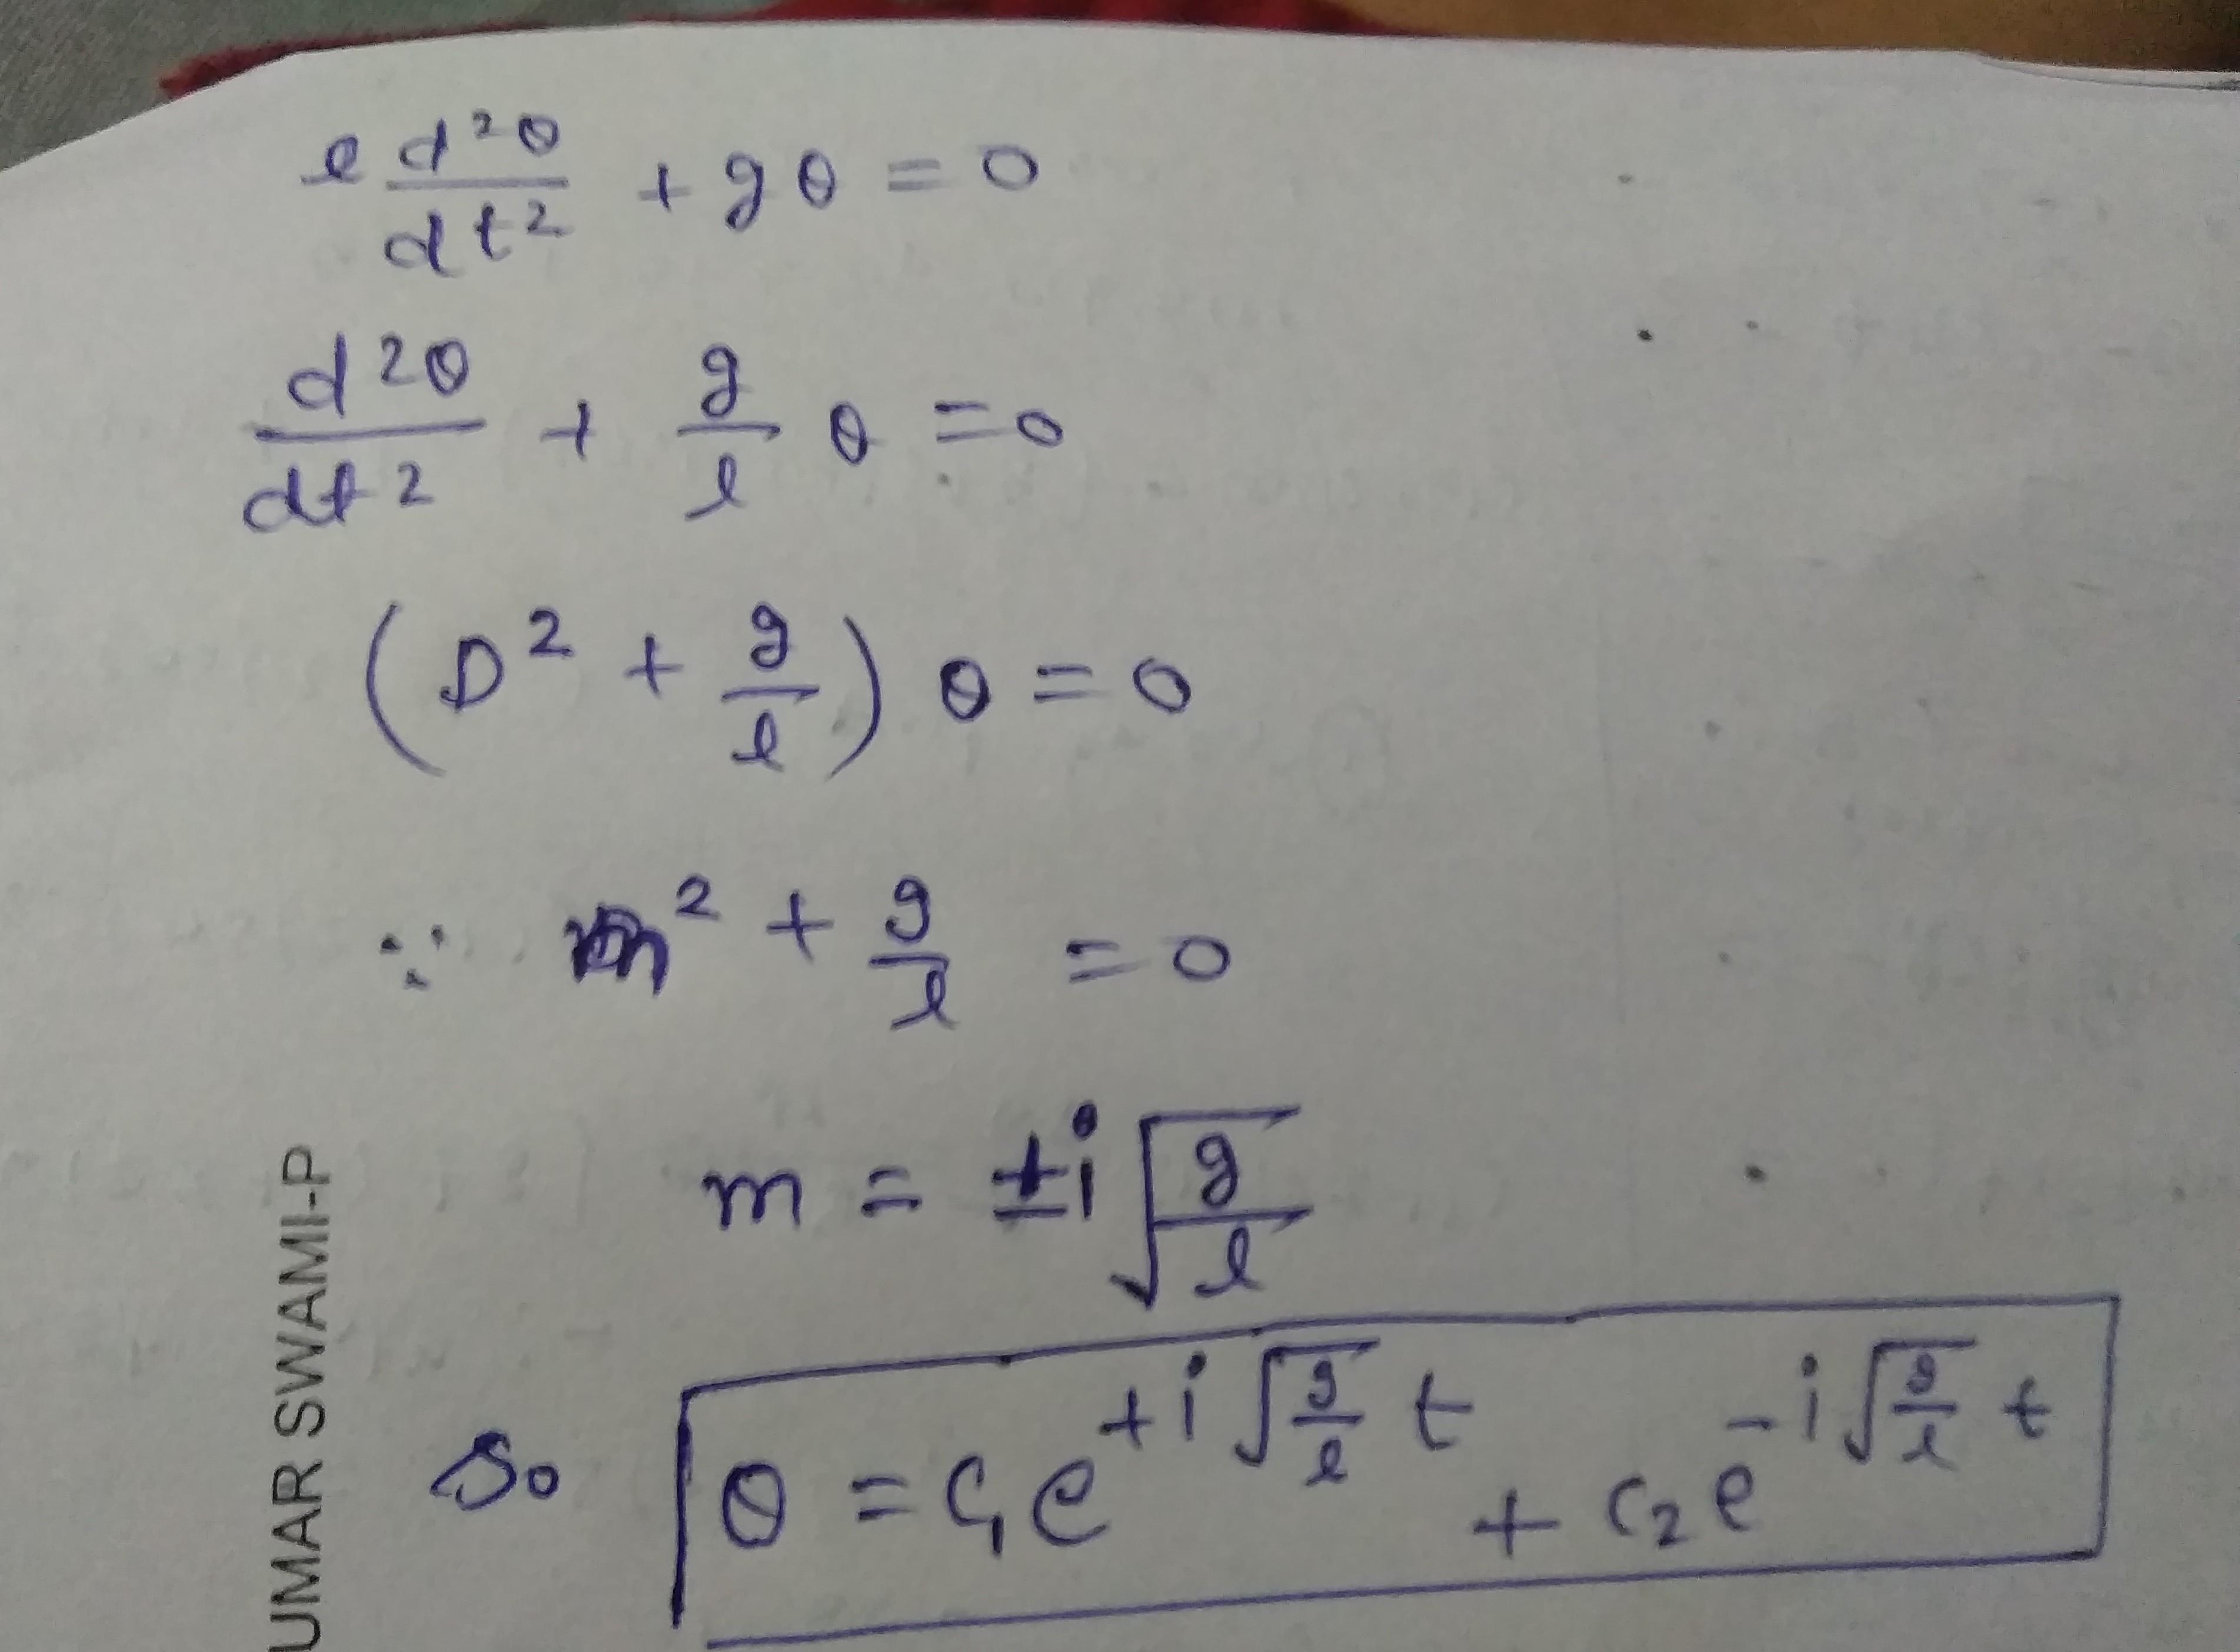 l d²θ/dt² + gθ = 0
d²θ/dt² + g/l θ = 0
(D² + g/l) θ = 0
∵ m² + g/l = 0
m = ±i √(g/l)
So θ = C₁e^(+i√(g/l) t) + C₂e^(-i√(g/l) t)
UMAR SWAMI-P